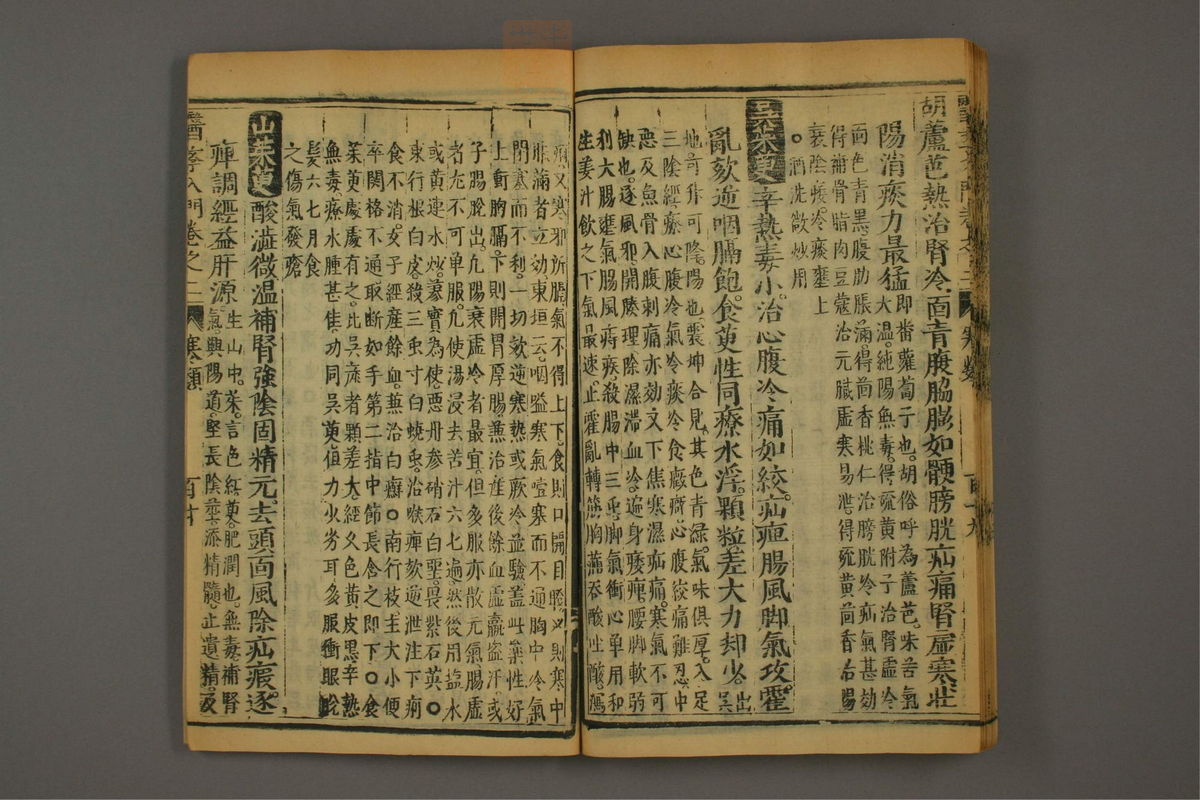 胡蘆芭熱治腎冷面青腹脇膨如髀膀胱疝痛腎虛寒壯
陽消痰力最猛即番蘿蔔子也胡俗呼為蘆芭味苦氣
大温純陽無毒得硫黄附子治腎虛冷
面色青黑腹肋脹滿得茴香桃仁治膀胱冷疝氣甚効
得補骨脂肉豆蔻治元臟虛寒易泄得硫黄茴香治陽
衰陰痿冷痰壅上
酒洗微炒用
吳茱萸辛熱毒小治心腹冷痛如絞疝疸腸風脚氣攻霍
亂欬逆咽膈飽食茰性同療水浮顆粒差大力却少出吳
地可升可降陽也震坤合見其色青緑氣味俱厚入足
三陰經療心腹冷氣冷痰冷食厥癖心腹絞痛難忍中
惡及魚骨入腹刺痛亦効又下焦寒濕疝痛寒氣不可
缺也逐風邪開腠理除濕滯血冷遍身㾏痺腰脚軟弱
利大腸壅氣腸風痔疾殺腸中三虫脚氣衝心單用和
生姜汁飲之下氣最速止霍亂轉筋胸滿吞酸性酸
又寒邪所膈氣不得上下食則口開目瞪又則寒中
脹滿者立効東垣云咽嗌寒氣噎塞而不通胸中冷氣
閉塞而不利一切欬逆寒熱或厥冷並驗蓋此藥性好
上衝胸膈下則開胃厚腸兼治産後餘血虛羸盜汗或
子腸脫出凡陽衰虛冷者最宜但多服亦散元氣腸虛
者尤不可單服凡使湯浸去苦汁六七遍然後用塩水
或黄連水炒蓼實為使惡丹參硝石白堊畏紫石英〇
東行根白皮殺三虫寸白蟯虫治喉痺欬逆泄注下痢
食不消女子經産餘血兼治白癬〇南行枝主大小便
卒関格不通取斷如手第二指中節長含之即下〇食
茱萸處處有之比吳産者顆差大經久色黄皮黒辛熱
無毒療水腫甚佳功同吳萸但力少劣耳多服衝眼脫
髪六七月食
之傷氣發瘡
山茱萸酸澁微温補腎強陰固精元去頭面風除疝瘕逐
痺調經益肝源生山中茱言色紅萸肥潤也無毒補腎
氣興陽道堅長陰莖添精髓止遺精及
醫學入門卷之二 寒類